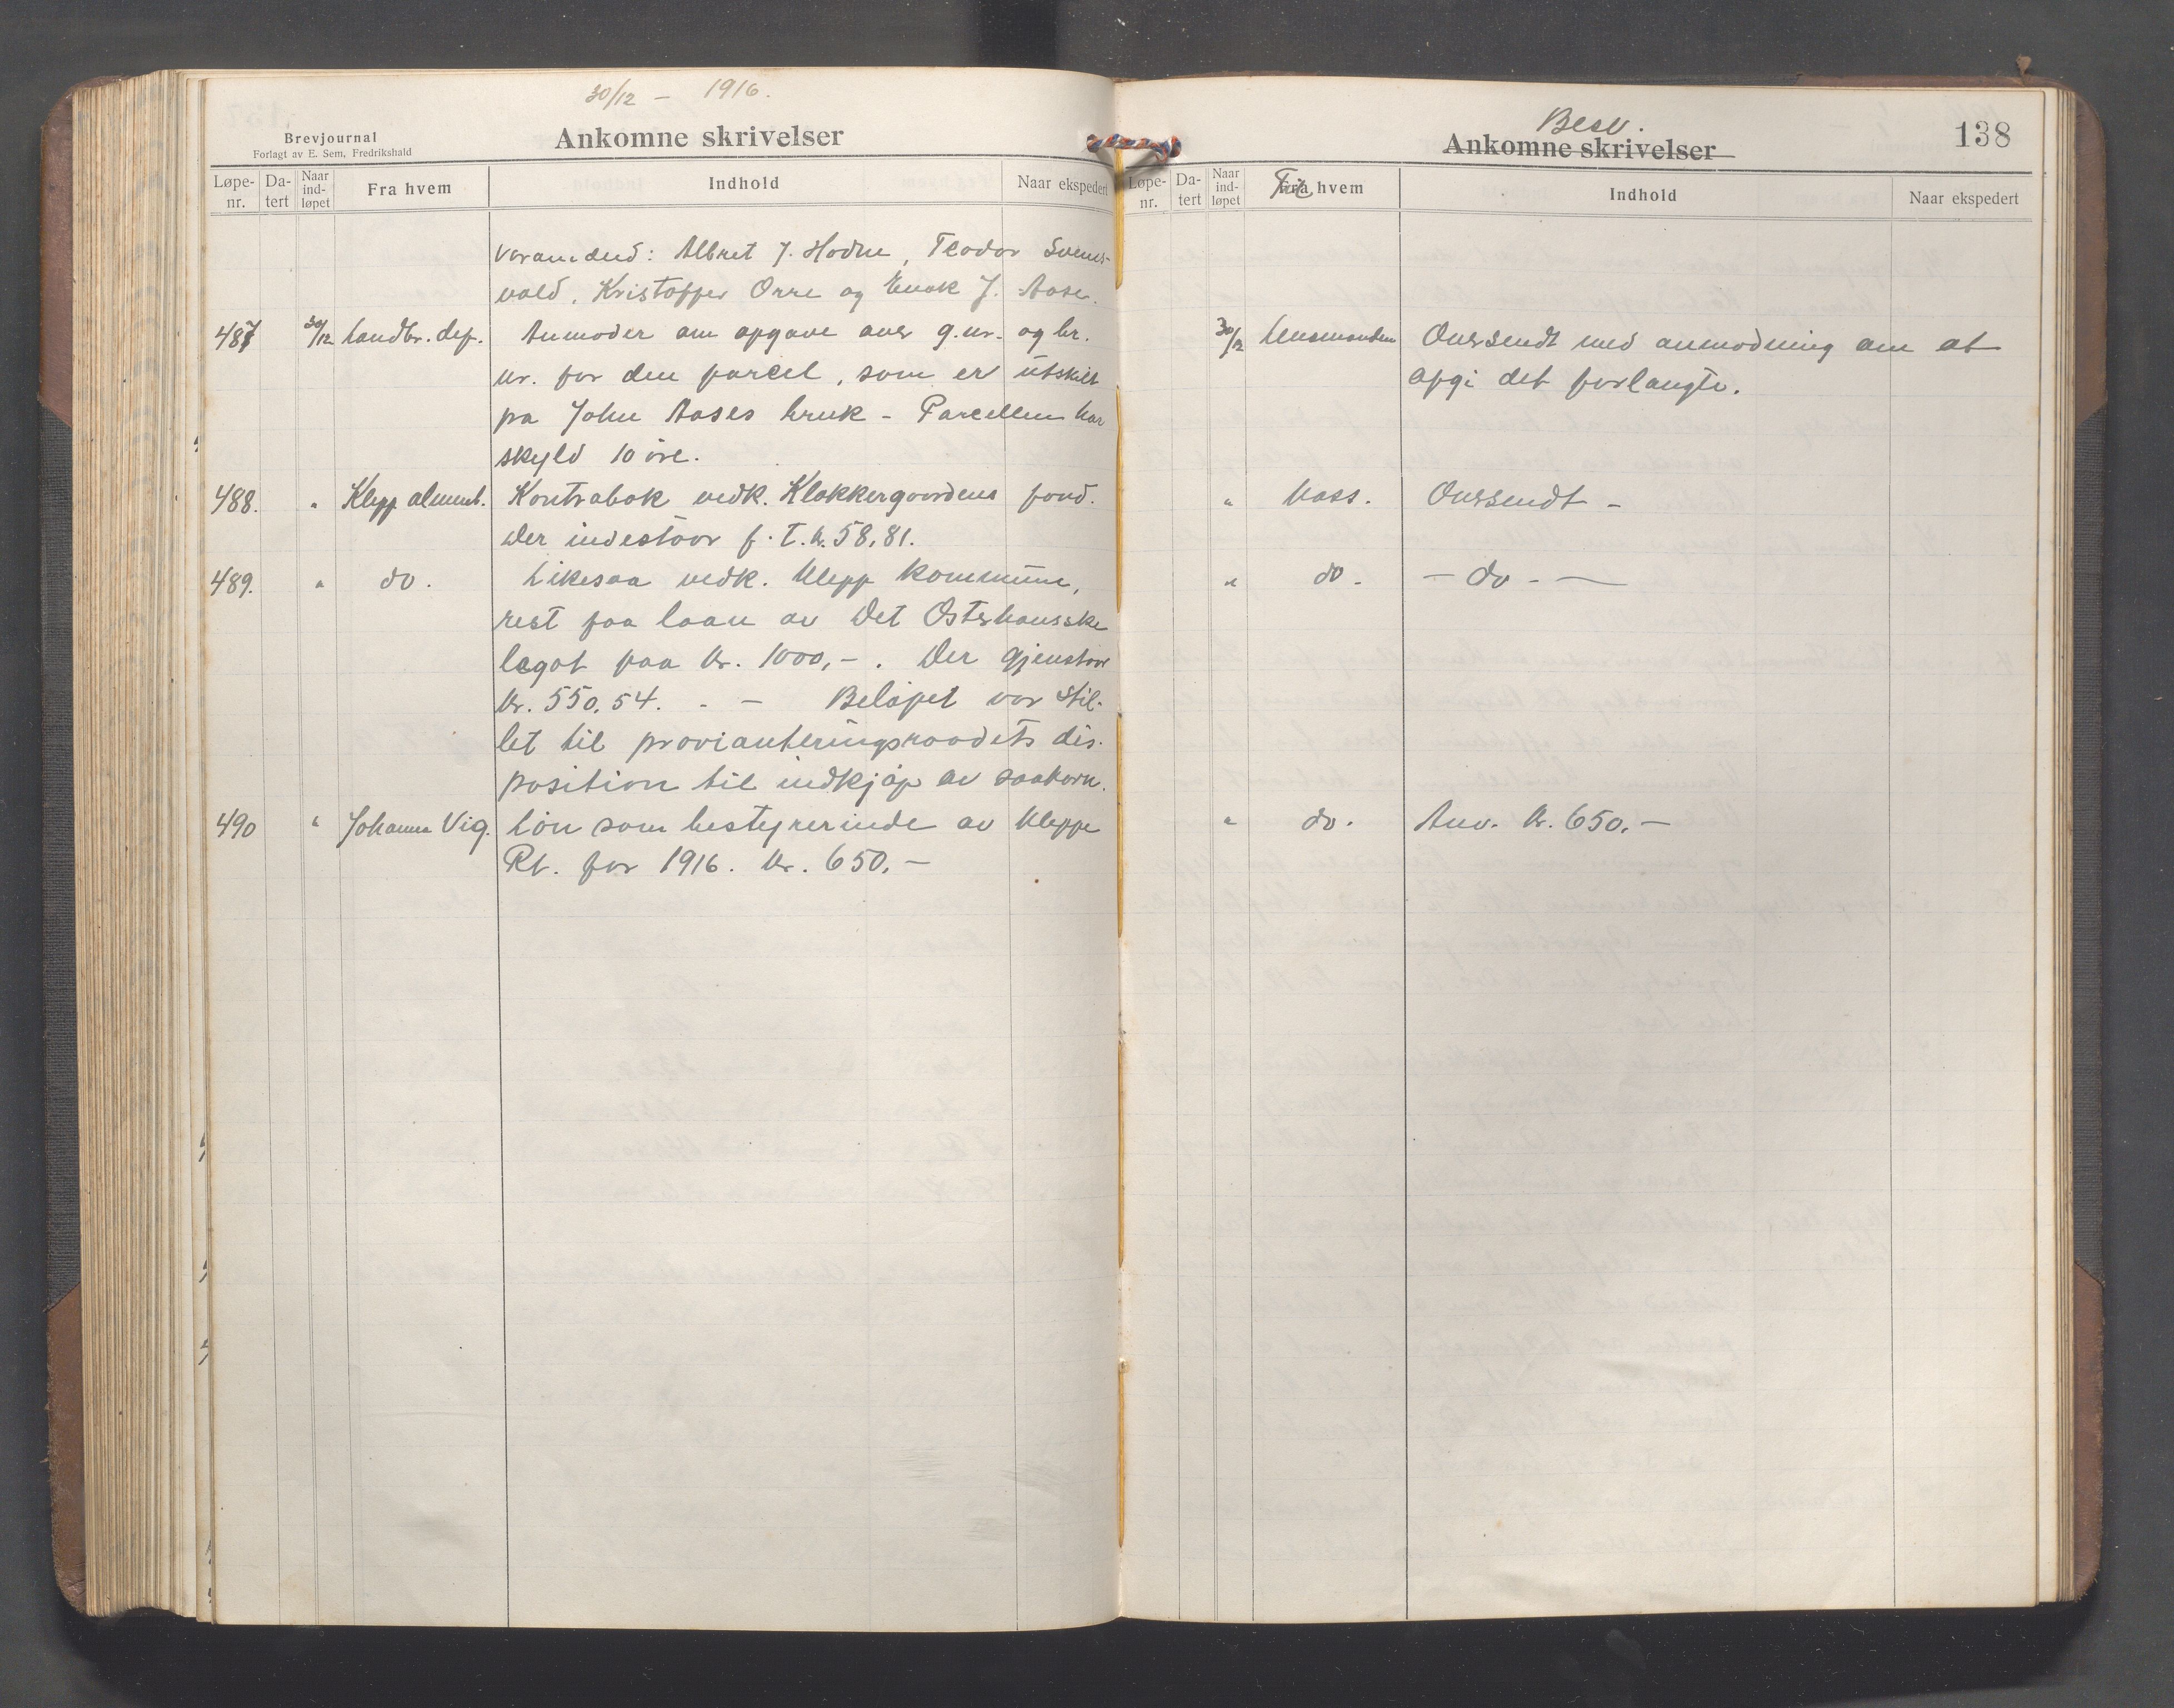 30/12 – 1916.
Brevjournal
Forlagt av E. Sem, Fredrikshald
Ankomne skrivelser
Løpe-nr. Da-tert Naar ind-løpet Fra hvem Indhold Naar ekspedert
Varamænd: Albret J. Hodne, Teodor Svens-
vold, Kristoffer Orre og Enok J. Aase.
487 30/12 Landbr. dep. Anmoder om opgave over g.nr. og br.
nr. for den parcel, som er utskilt
pa John Aases bruk – Parcellen har
skyld 10 øre.
488. " Klepp almenb. Kontrabok vedk. Klokkergaardens fond.
Der indestaar f. T. kr. 58,81.
489. " do. Likesaa vedk. Klepp kommune,
rest paa laan av Det Osterhausske
legat paa kr. 1000,-. Der gjenstaar
kr. 550,54. - – Beløpet var stil-
let til provianteringsraadets dis-
position til indkjøp av saakorn.
490 " Johanna Vig. Løn som bestyrerinde av Kleppe
Rt. for 1916. kr. 650,–
138
Besv.
Ankomne skrivelser
Løpe-nr. Da-tert Naar ind-løpet Fra Til hvem Indhold Naar ekspedert
30/12 Lensmanden Oversendt med anmodning om at
opgi det forlangte.
" Kass. Oversendt –
" do. – do - —
" do. Anv. kr. 650,–